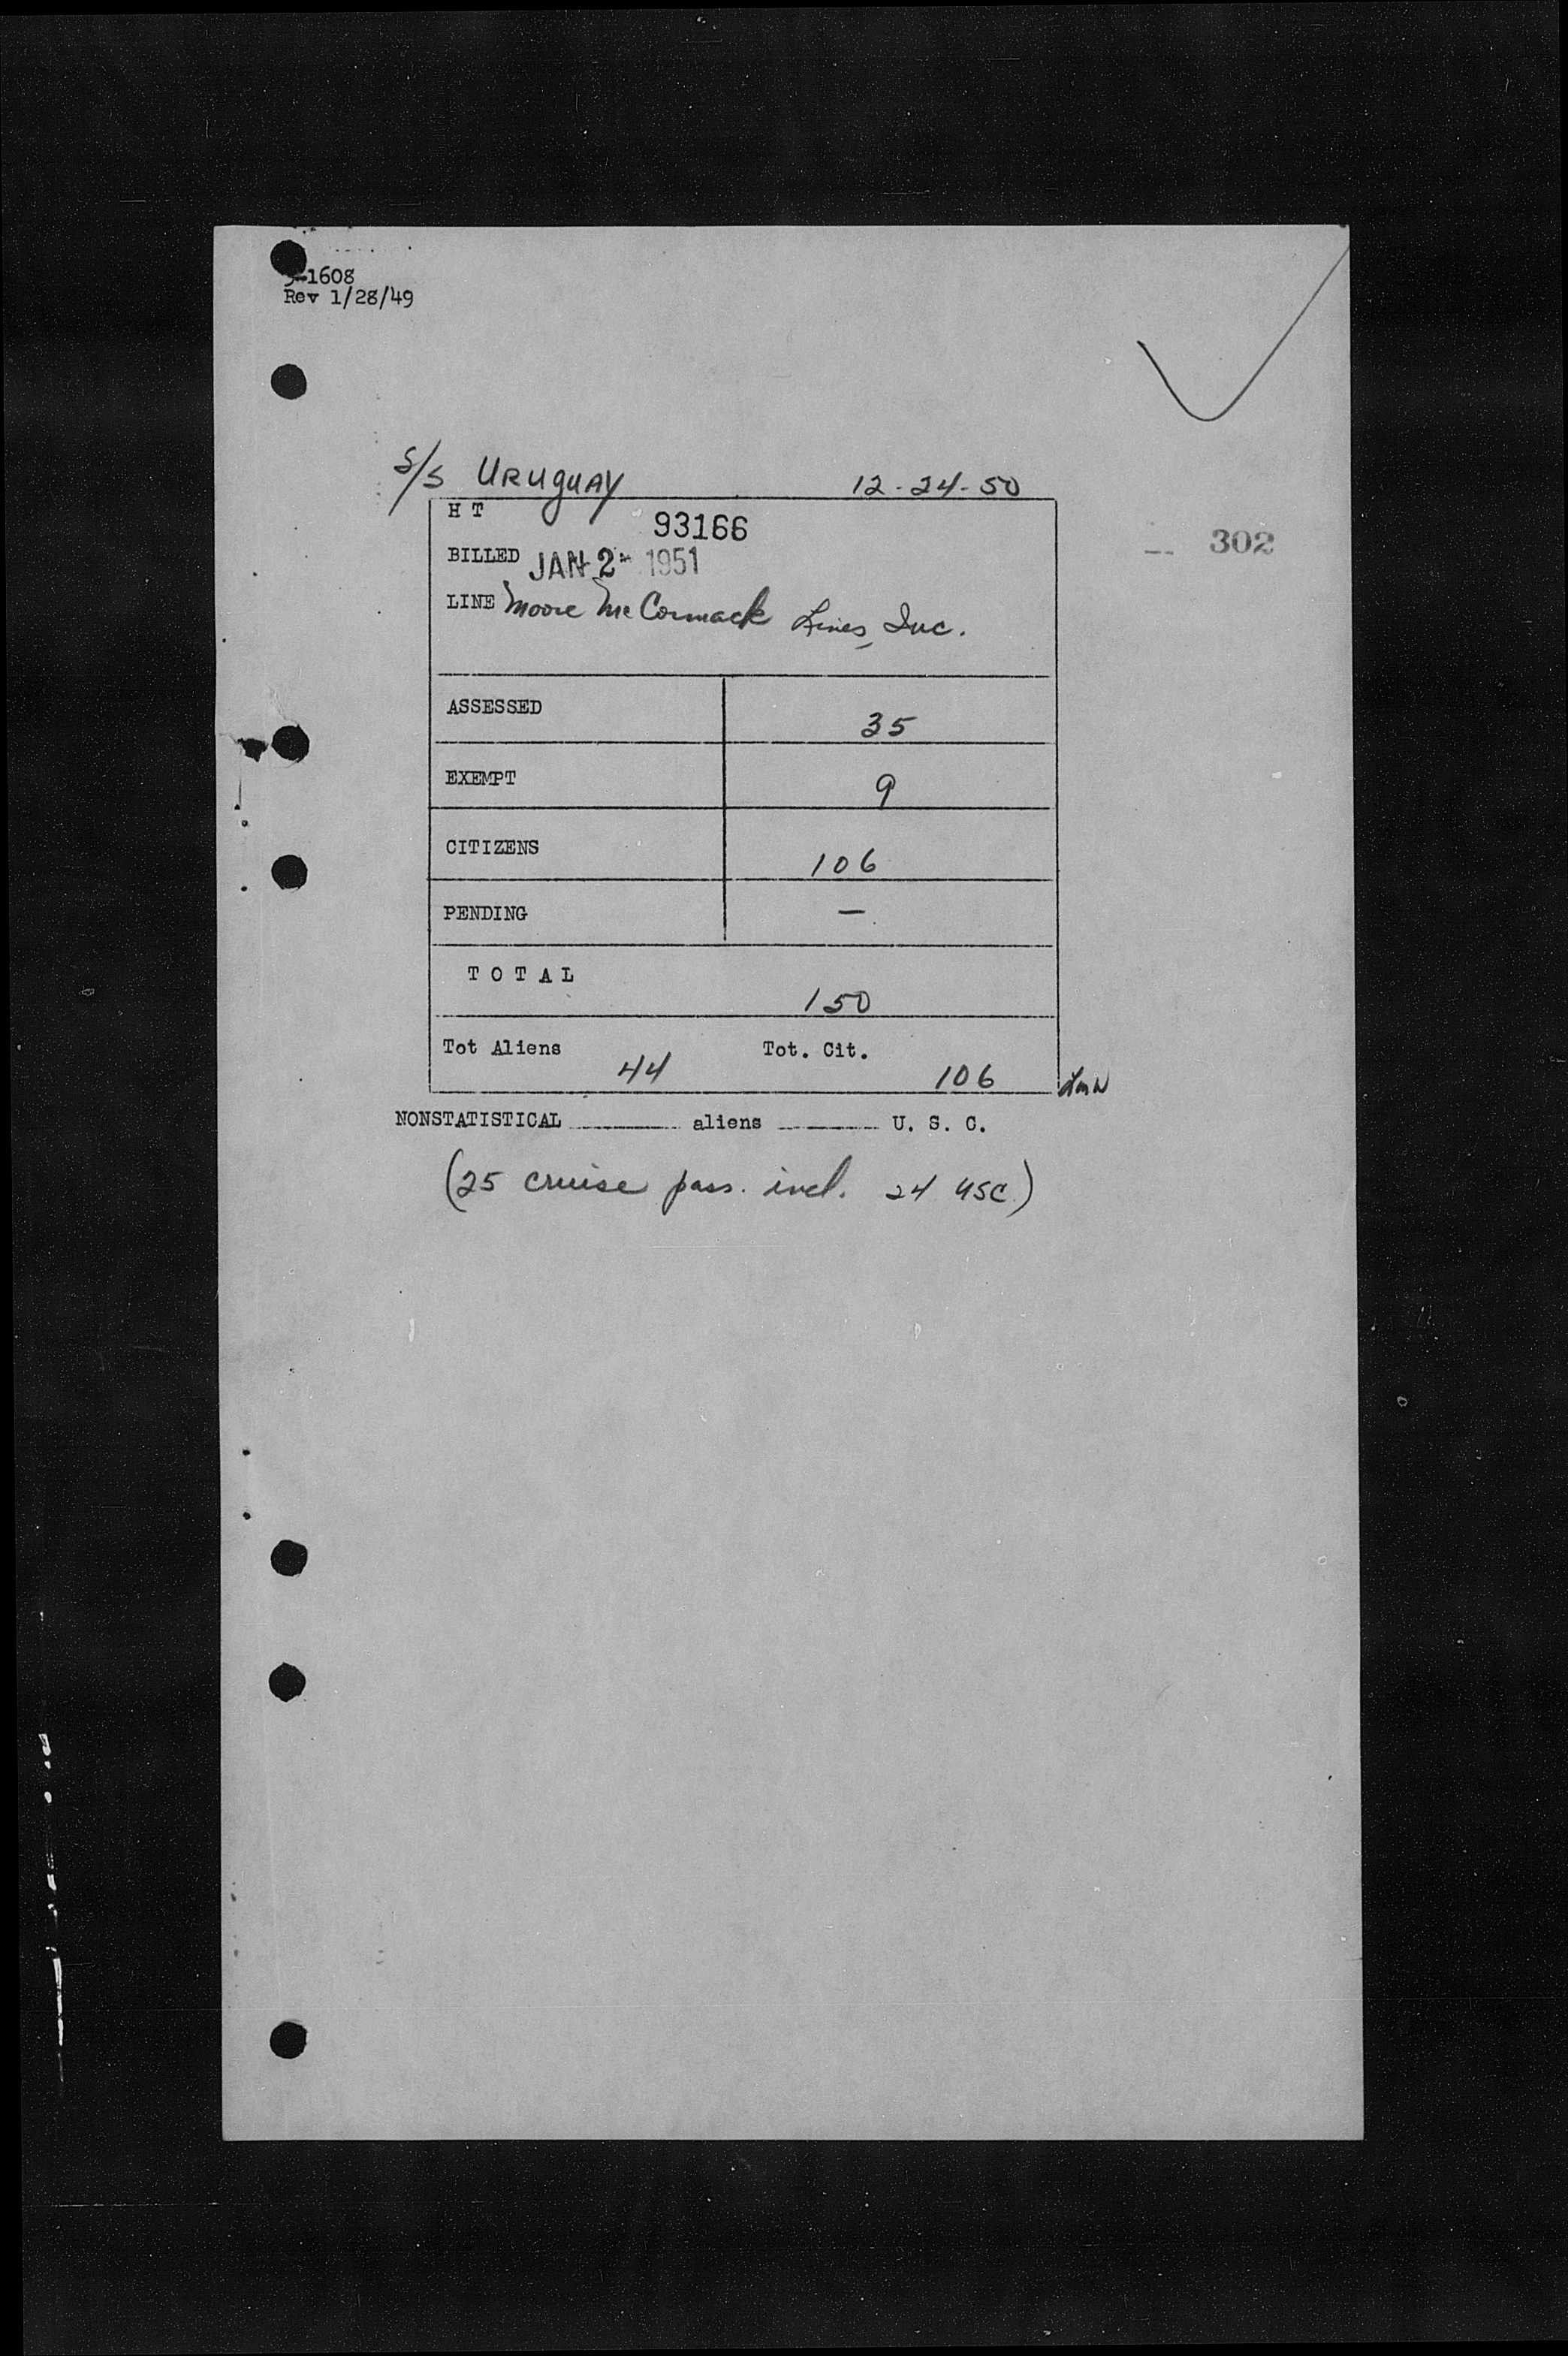 -1608
Rev 1/28/49
S/S URUGUAY 12-24-50
H T 93166
302
BILLED JAN 2 - 1951
LINE Moore McCormack Lines, Inc.
ASSESSED 35
EXEMPT 9
CITIZENS 106
PENDING —
T O T A L 150
Tot Aliens 44 Tot. Cit. 106
NONSTATISTICAL ______ aliens ______ U. S. C.
(25 cruise pass. incl. 24 USC)